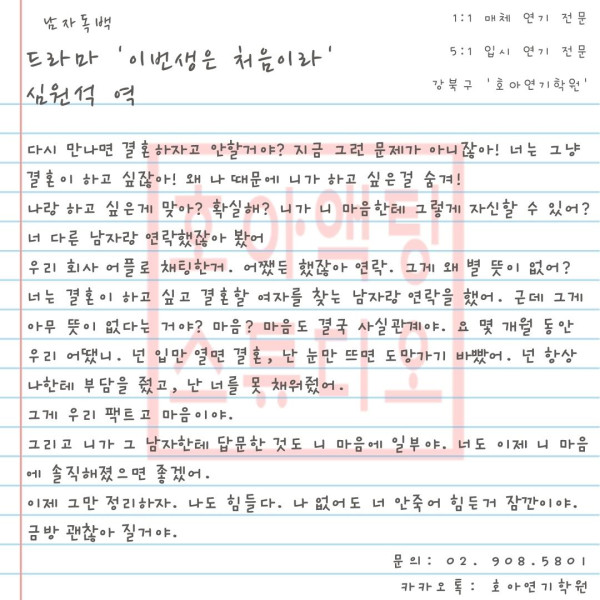 남자독백
1:1 매체 연기 전문
드라마 '이번생은 처음이라'
5:1 입시 연기 전문
심원석 역
강북구 '호아연기학원'
다시 만나면 결혼하자고 안할거야? 지금 그런 문제가 아니잖아! 너는 그냥
결혼이 하고 싶잖아! 왜 나 때문에 니가 하고 싶은걸 숨겨!
나랑 하고 싶은게 맞아? 확실해? 니가 니 마음한테 그렇게 자신할 수 있어?
너 다른 남자랑 연락했잖아 봤어
우리 회사 어플로 채팅한거. 어쨌든 했잖아 연락. 그게 왜 별 뜻이 없어?
너는 결혼이 하고 싶고 결혼할 여자를 찾는 남자랑 연락을 했어. 근데 그게
아무 뜻이 없다는 거야? 마음? 마음도 결국 사실관계야. 요 몇 개월 동안
우리 어땠니. 넌 입만 열면 결혼, 난 눈만 뜨면 도망가기 바빴어. 넌 항상
나한테 부담을 줬고, 난 너를 못 채워줬어.
그게 우리 팩트고 마음이야.
그리고 니가 그 남자한테 답문한 것도 니 마음에 일부야. 너도 이제 니 마음
에 솔직해졌으면 좋겠어.
이제 그만 정리하자. 나도 힘들다. 나 없어도 너 안죽어 힘든거 잠깐이야.
금방 괜찮아 질거야.
문의: 02. 908.5801
카카오톡: 호아연기학원
호아액팅
스튜디오